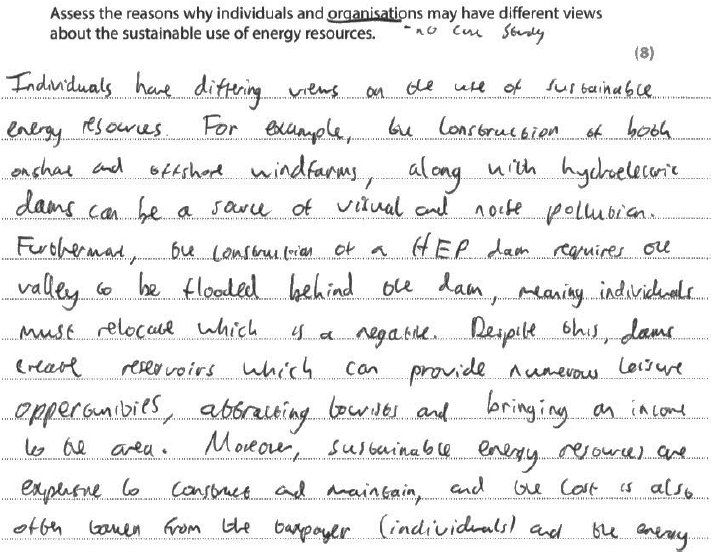 Assess the reasons why individuals and organisations may have different views
about the sustainable use of energy resources. - no case study
(8)
Individuals have differing views on the use of sustainable
energy resources. For example, the construction of both
onshore and offshore windfarms, along with hydroelectric
dams can be a source of visual and noise pollution.
Furthermore, the construction of a HEP dam requires the
valley to be flooded behind the dam, meaning individuals
must relocate which is a negative. Despite this, dams
create reservoirs which can provide numerous leisure
opportunities, attracting tourists and bringing an income
to the area. Moreover, sustainable energy resources are
expensive to construct and maintain, and the cost is also
often taken from the taxpayer (individuals) and the energy